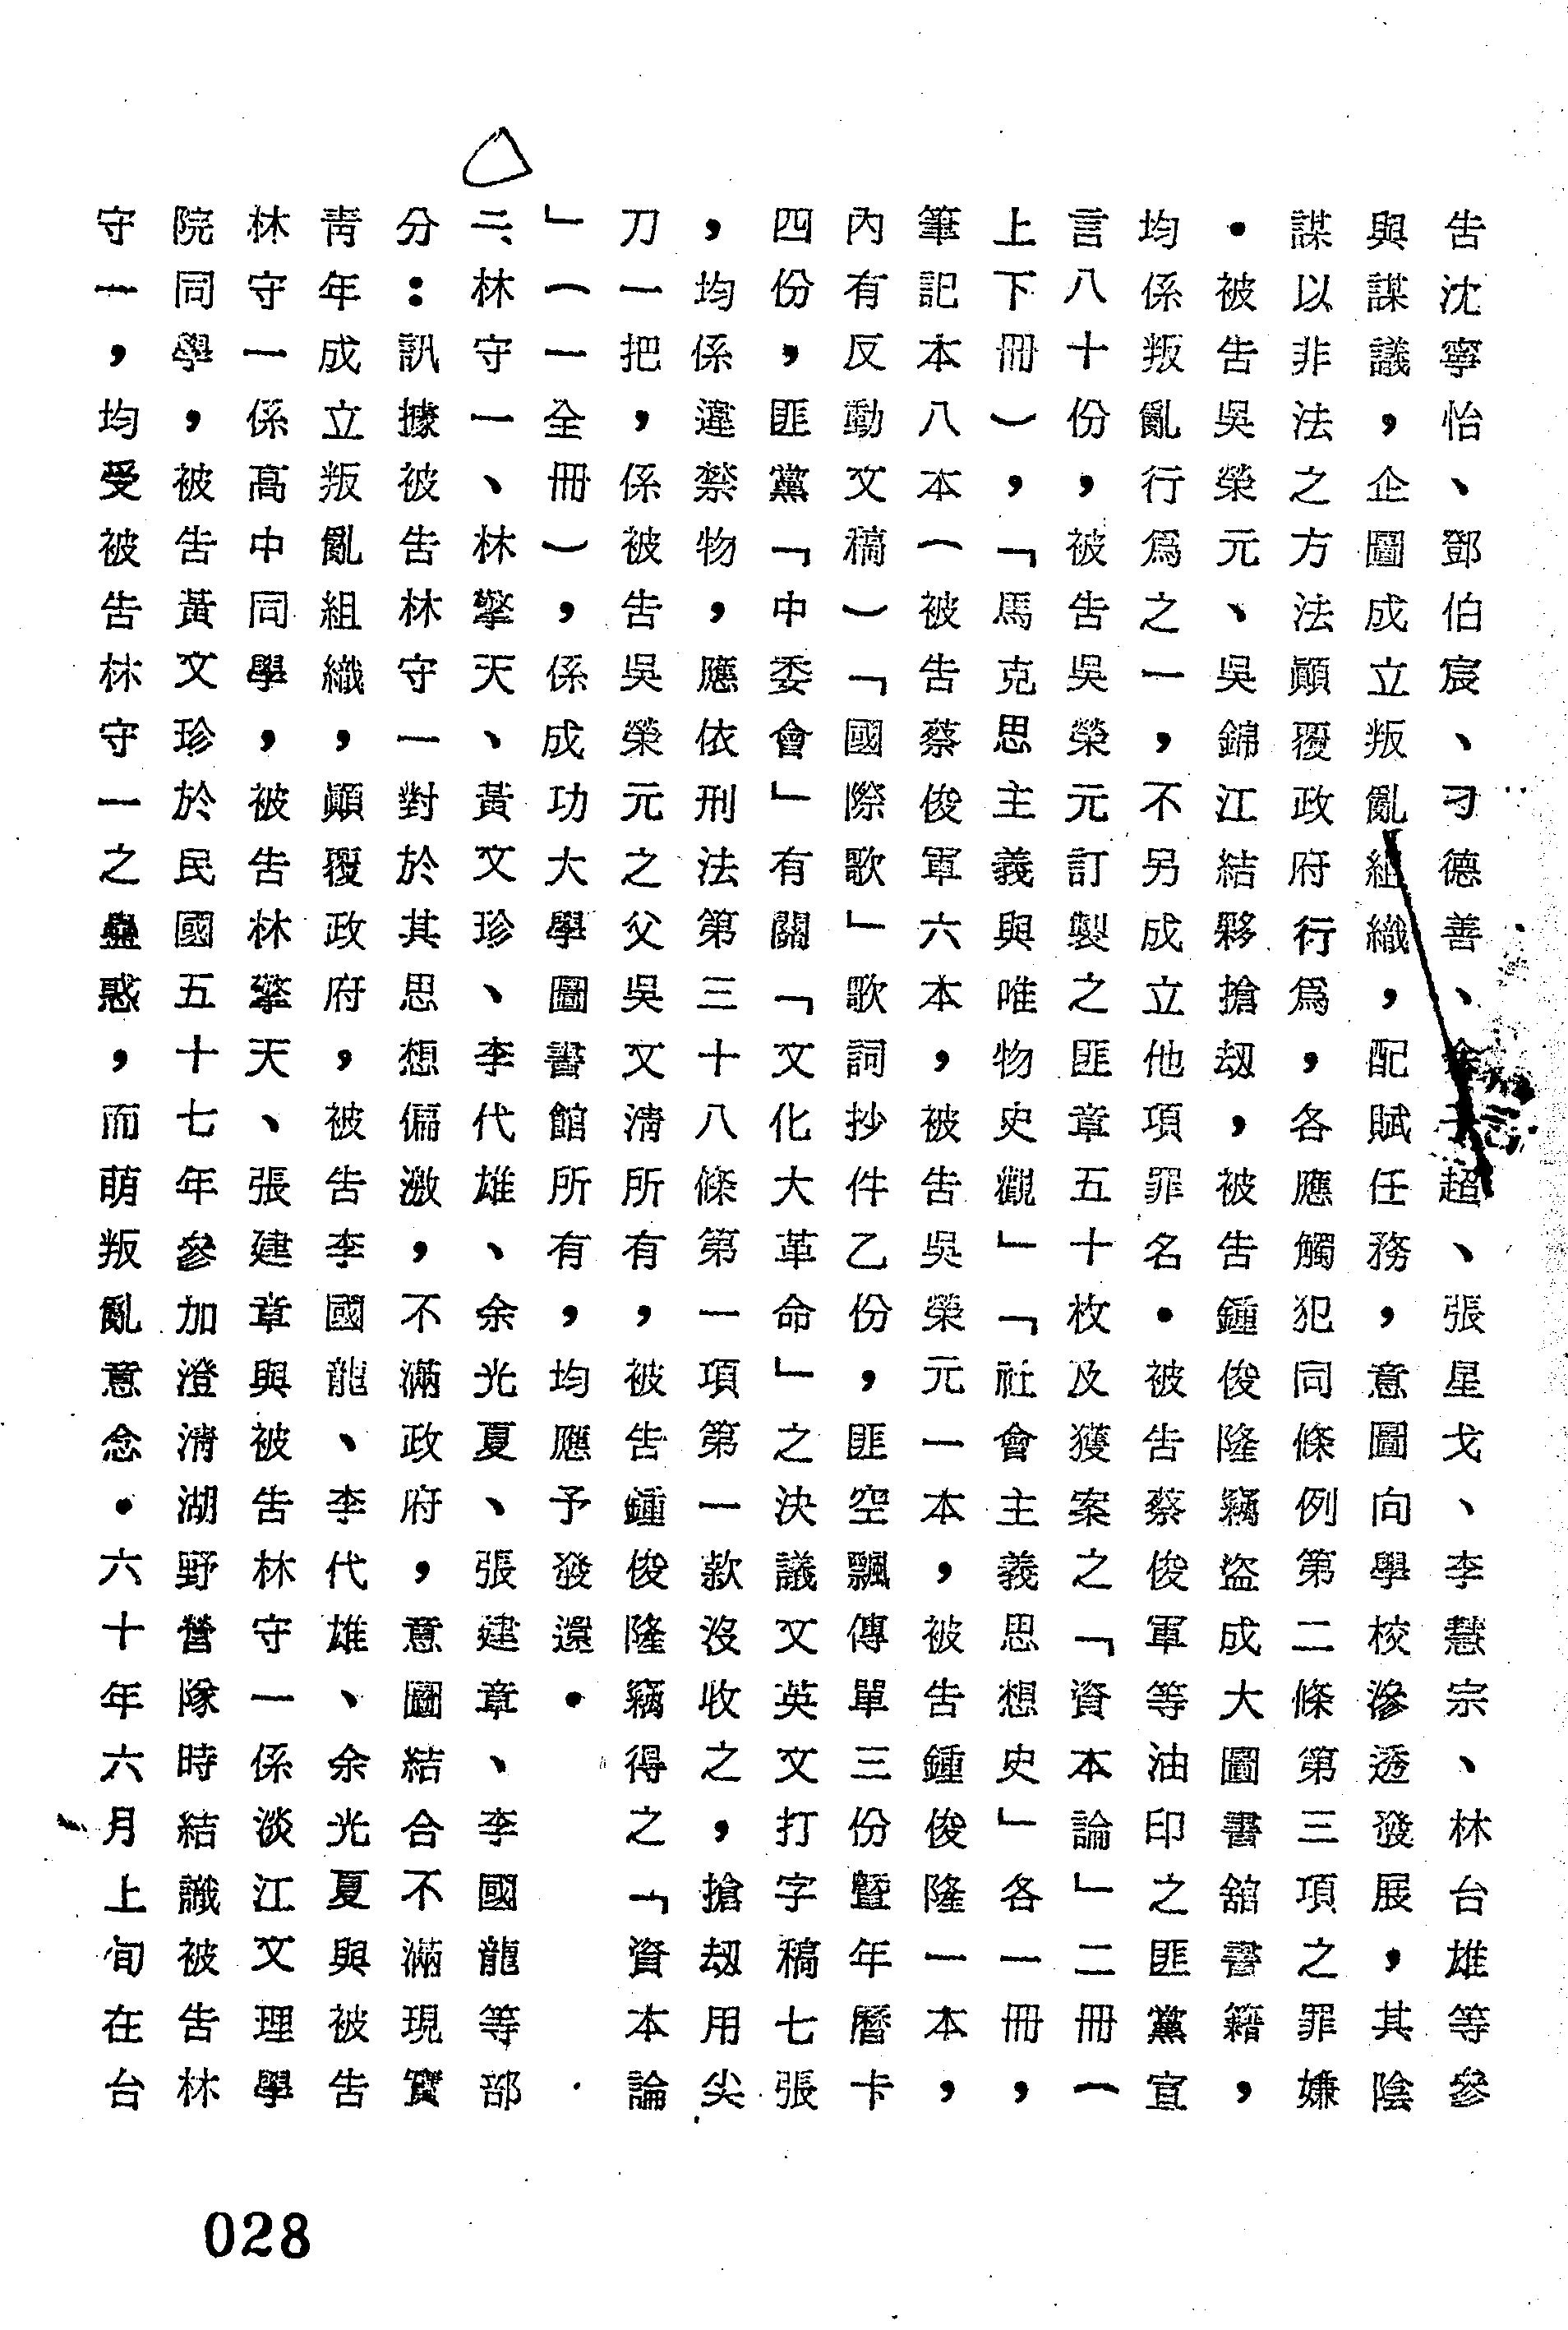 告沈寧怡、鄧伯宸、刁德善、余子超、張星戈、李慧宗、林台雄等參
與謀議，企圖成立叛亂組織，配賦任務，意圖向學校滲透發展，其陰
謀以非法之方法顚覆政府行爲，各應觸犯同條例第二條第三項之罪嫌
．被告吳榮元、吳錦江結夥搶刼，被告鍾俊隆竊盜成大圖書舘書籍，
均係叛亂行爲之一，不另成立他項罪名．被告蔡俊軍等油印之匪黨宣
言八十份，被告吳榮元訂製之匪章五十枚及獲案之「資本論」二冊（
上下冊），「馬克思主義與唯物史觀」「社會主義思想史」各一冊，
筆記本八本（被告蔡俊軍六本，被告吳榮元一本，被告鍾俊隆一本，
內有反動文稿）「國際歌」歌詞抄件乙份，匪空飄傳單三份曁年曆卡
四份，匪黨「中委會」有關「文化大革命」之決議文英文打字稿七張
，均係違禁物，應依刑法第三十八條第一項第一款沒收之，搶刼用尖
刀一把，係被告吳榮元之父吳文淸所有，被告鍾俊隆竊得之「資本論
」（一全冊），係成功大學圖書館所有，均應予發還．
二、林守一、林擎天、黃文珍、李代雄、余光夏、張建章、李國龍等部
分：訊據被告林守一對於其思想偏激，不滿政府，意圖結合不滿現實
靑年成立叛亂組織，顚覆政府，被告李國龍、李代雄、余光夏與被告
林守一係高中同學，被告林擎天、張建章與被告林守一係淡江文理學
院同學，被告黃文珍於民國五十七年參加澄淸湖野營隊時結識被告林
守一，均受被告林守一之蠱惑，而萌叛亂意念．六十年六月上旬在台
028